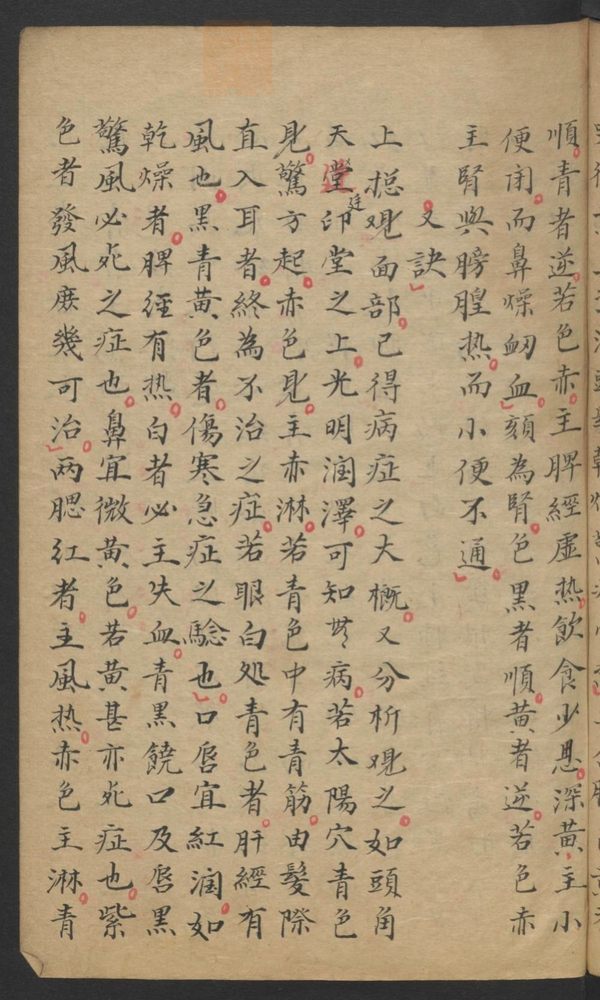 順青者逆若色赤主脾經虛热飲食少思深黄主小
便闭而鼻燥衂血頦為腎色黑者順黄者逆若色赤
主腎與膀胱热而小便不通
又訣
上捴观面部已得病症之大概又分析观之如頭角
天堂印堂之上光明润澤可知無病若太陽穴青色
見驚方起赤色見主赤淋若青色中有青筋由髮際
直入耳者終為不治之症若眼白处青色者肝經有
風也黑青黄色者傷寒急症之驗也口唇宜紅润如
乾燥者脾經有热白者必主失血青黑饒口及唇黑
驚風必死之症也鼻宜微黄色若黄甚亦死症也紫
色者發風庶幾可治两腮红者主風热赤色主淋青
廷